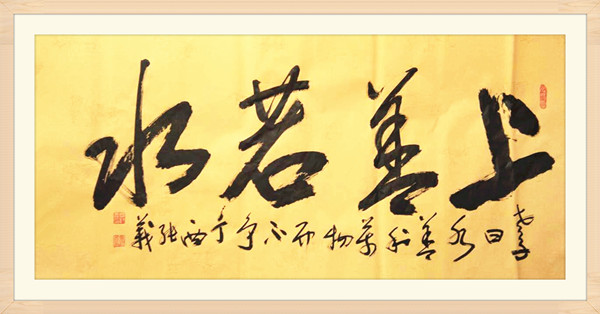 上善若水
老子曰水善利萬物而不争丁酉张義